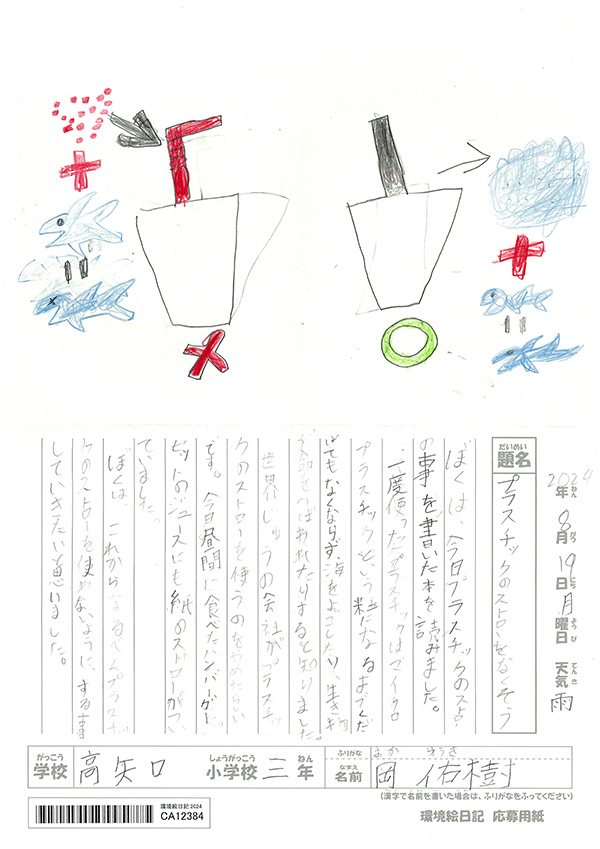 2024年 8月 19日 月曜日 天気 雨
ねん がつ にち ようび てんき
だいめい
題名 プラスチックのストローをなくそう
ぼくは、今日プラスチックのストロー
の事を書いた本を読みました。
一度使ったプラスチックはマイクロ
プラスチックという粒になるまでくだ
けてもなくならず、海をよごしたり、生き物
うばわれたりすると知りました。
世界じゅうの会社がプラスチッ
クのストローを使うのをやめたらしい
です。今日昼間に食べたハンバーガー
セットのジュースにも紙のストローがつい
ていました。
ぼくは、これからなるべくプラスチッ
クのストローを使わないように、する事
していきたいと思いました。
がっこう しょうがっこう ねん ふりがな おか ゆうき
学校 高矢口 小学校 三年 なまえ 名前 岡 佑樹
(漢字で名前を書いた場合は、ふりがなをふってください)
環境絵日記2024
CA12384
環境絵日記 応募用紙